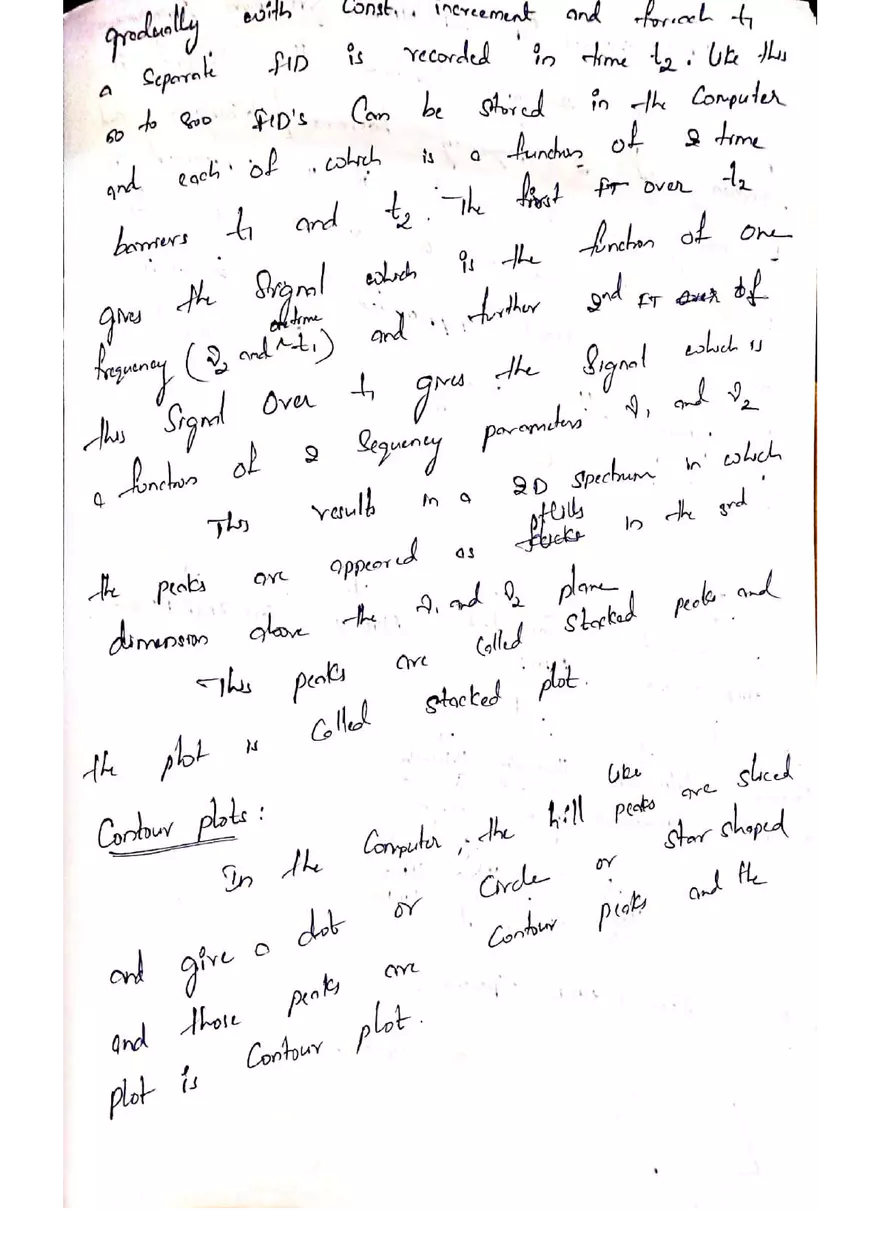 gradually with const. increement and foreach t₁
a separate FID is recorded in time t₂. like this
60 to 800 FID's Can be stored in the Computer
and each of which is a function of 2 time
barriers t₁ and t₂. The first FT over t₂
gives the Signal which is the function of one
frequency (ν₂ and time t₁) and further 2nd FT of
this Signal Over t₁ gives the Signal which is
a function of 2 Sequency parameters ν₁ and ν₂
This results in a 2D spectrum in which
the peaks are appeared as hills in the 3rd
dimension above the ν₁ and ν₂ plane
This peaks are Called stacked peaks and
the plot is Called stacked plot.
Contour plots:
In the Computer, the hill like peaks are sliced
and give a dot or Circle or star shaped
and those peaks are Contour peaks and the
plot is Contour plot.